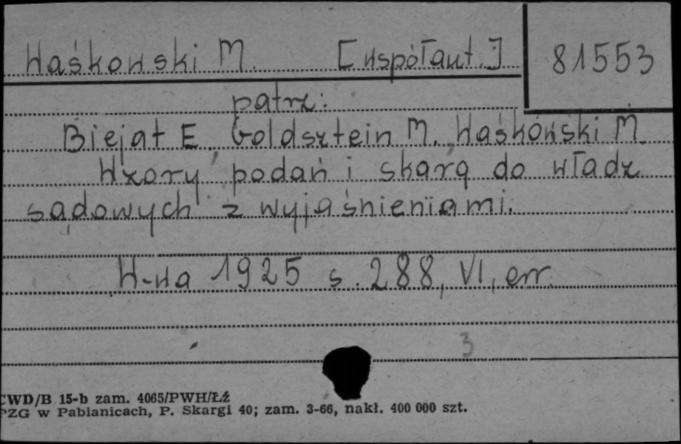 Waśkowski M. [współaut.] 81553
patrz:
Biejat E., Goldsztein M., Waśkowski M.
Wzory podań i skarg do władz
sądowych z wyjaśnieniami.
W-wa 1925 s. 288, VI, err.
3
CWD/B 15-b zam. 4065/PWH/Łź
PZG w Pabianicach, P. Skargi 40; zam. 3-66, nakł. 400 000 szt.